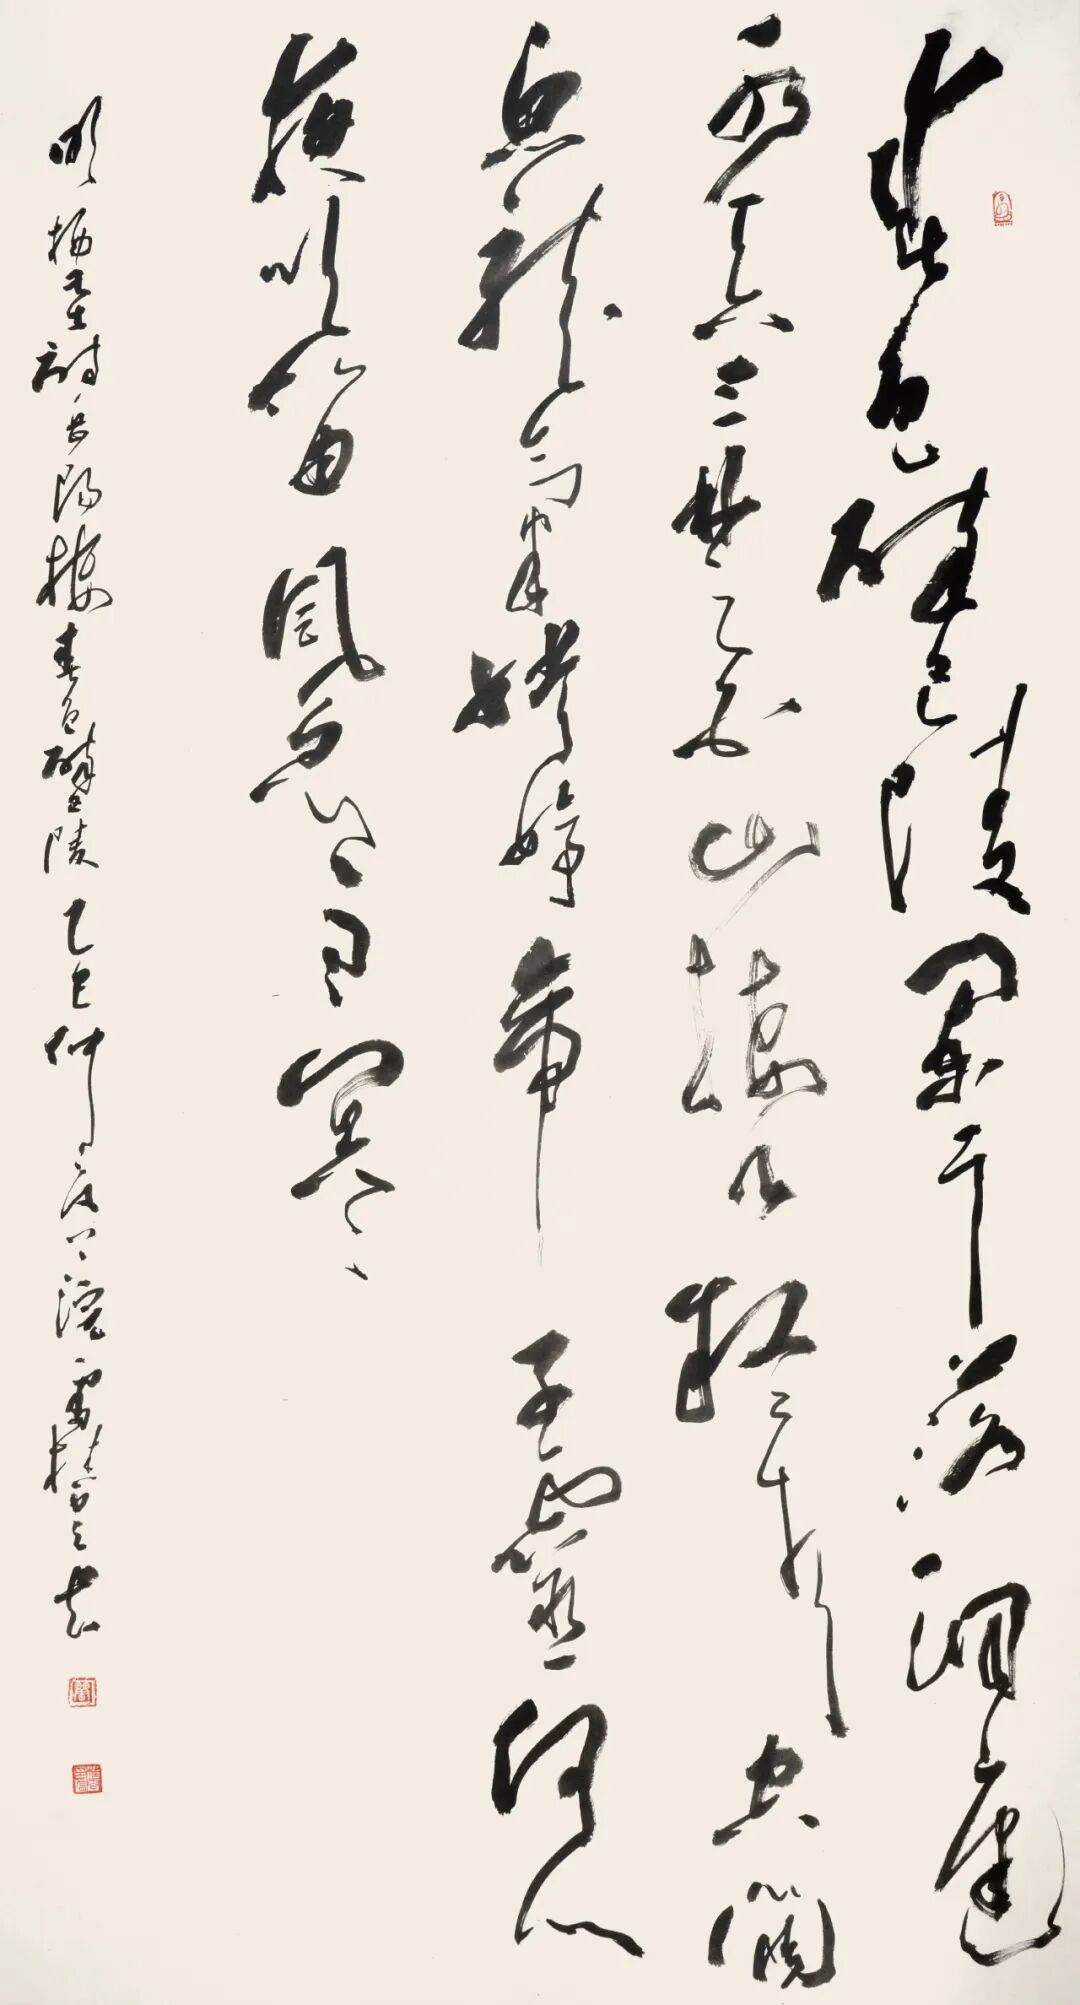 春色醉巴陵闌干落洞庭
水吞三楚白山接九疑青空闊
魚龍氣娉婷帝子靈何人
夜吹笛風急雨冥冥
明楊基詩岳陽樓春色醉巴陵乙巳仲夏